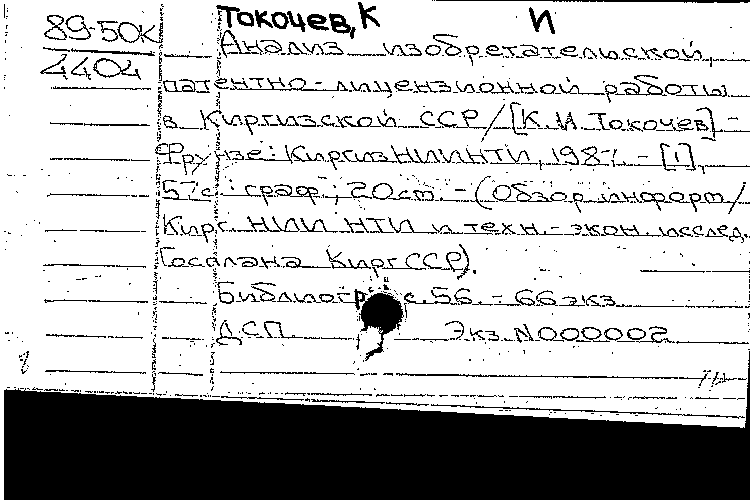 Токочев, К И
89-50к
4404
Анализ изобретательской,
патентно-лицензионной работы
в Киргизской ССР / [К.И. Токочев] -
Фрунзе: КиргизНИИНТИ, 1987. - [1],
57с.: граф.; 20см. - (Обзор. информ /
Кирг. НИИ НТИ и техн.-экон. исслед.
Госплана КиргССР).
Библиогр. с. 56. - 66экз.
ДСП. Экз. N000002